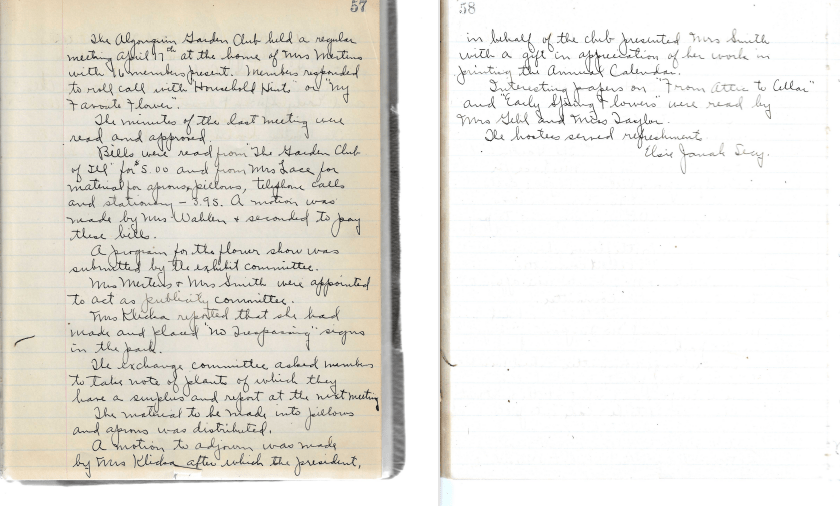 57
The Algonquin Garden Club held a regular
meeting April 17th at the home of Mrs Mertins
with 16 members present. Members responded
to roll call with "Household Hints" or "My
Favorite Flower".
The minutes of the last meeting were
read and approved.
Bills were read from "The Garden Club
of Ill" for $5.00 and from Mrs Lace for
material for aprons, pillows, telephone calls
and stationery – 3.95. A motion was
made by Mrs Wahlen + seconded to pay
these bills.
A program for the flower show was
submitted by the exhibit committee.
Mrs Mertens + Mrs Smith were appointed
to act as publicity committee.
Mrs Klicka reported that she had
made and placed "No Trespassing" signs
in the park.
The exchange committee asked members
to take note of plants of which they
have a surplus and report at the next meeting
The material to be made into pillows
and aprons was distributed.
A motion to adjourn was made
by Mrs Klicka after which the president,
58
in behalf of the club presented Mrs Smith
with a gift in appreciation of her work in
printing the Annual Calendar.
Interesting papers on "From Attic to Cellar"
and "Early Spring Flowers" were read by
Mrs Gehl and Miss Taylor.
The hostess served refreshments
Elsie Janak Secy.